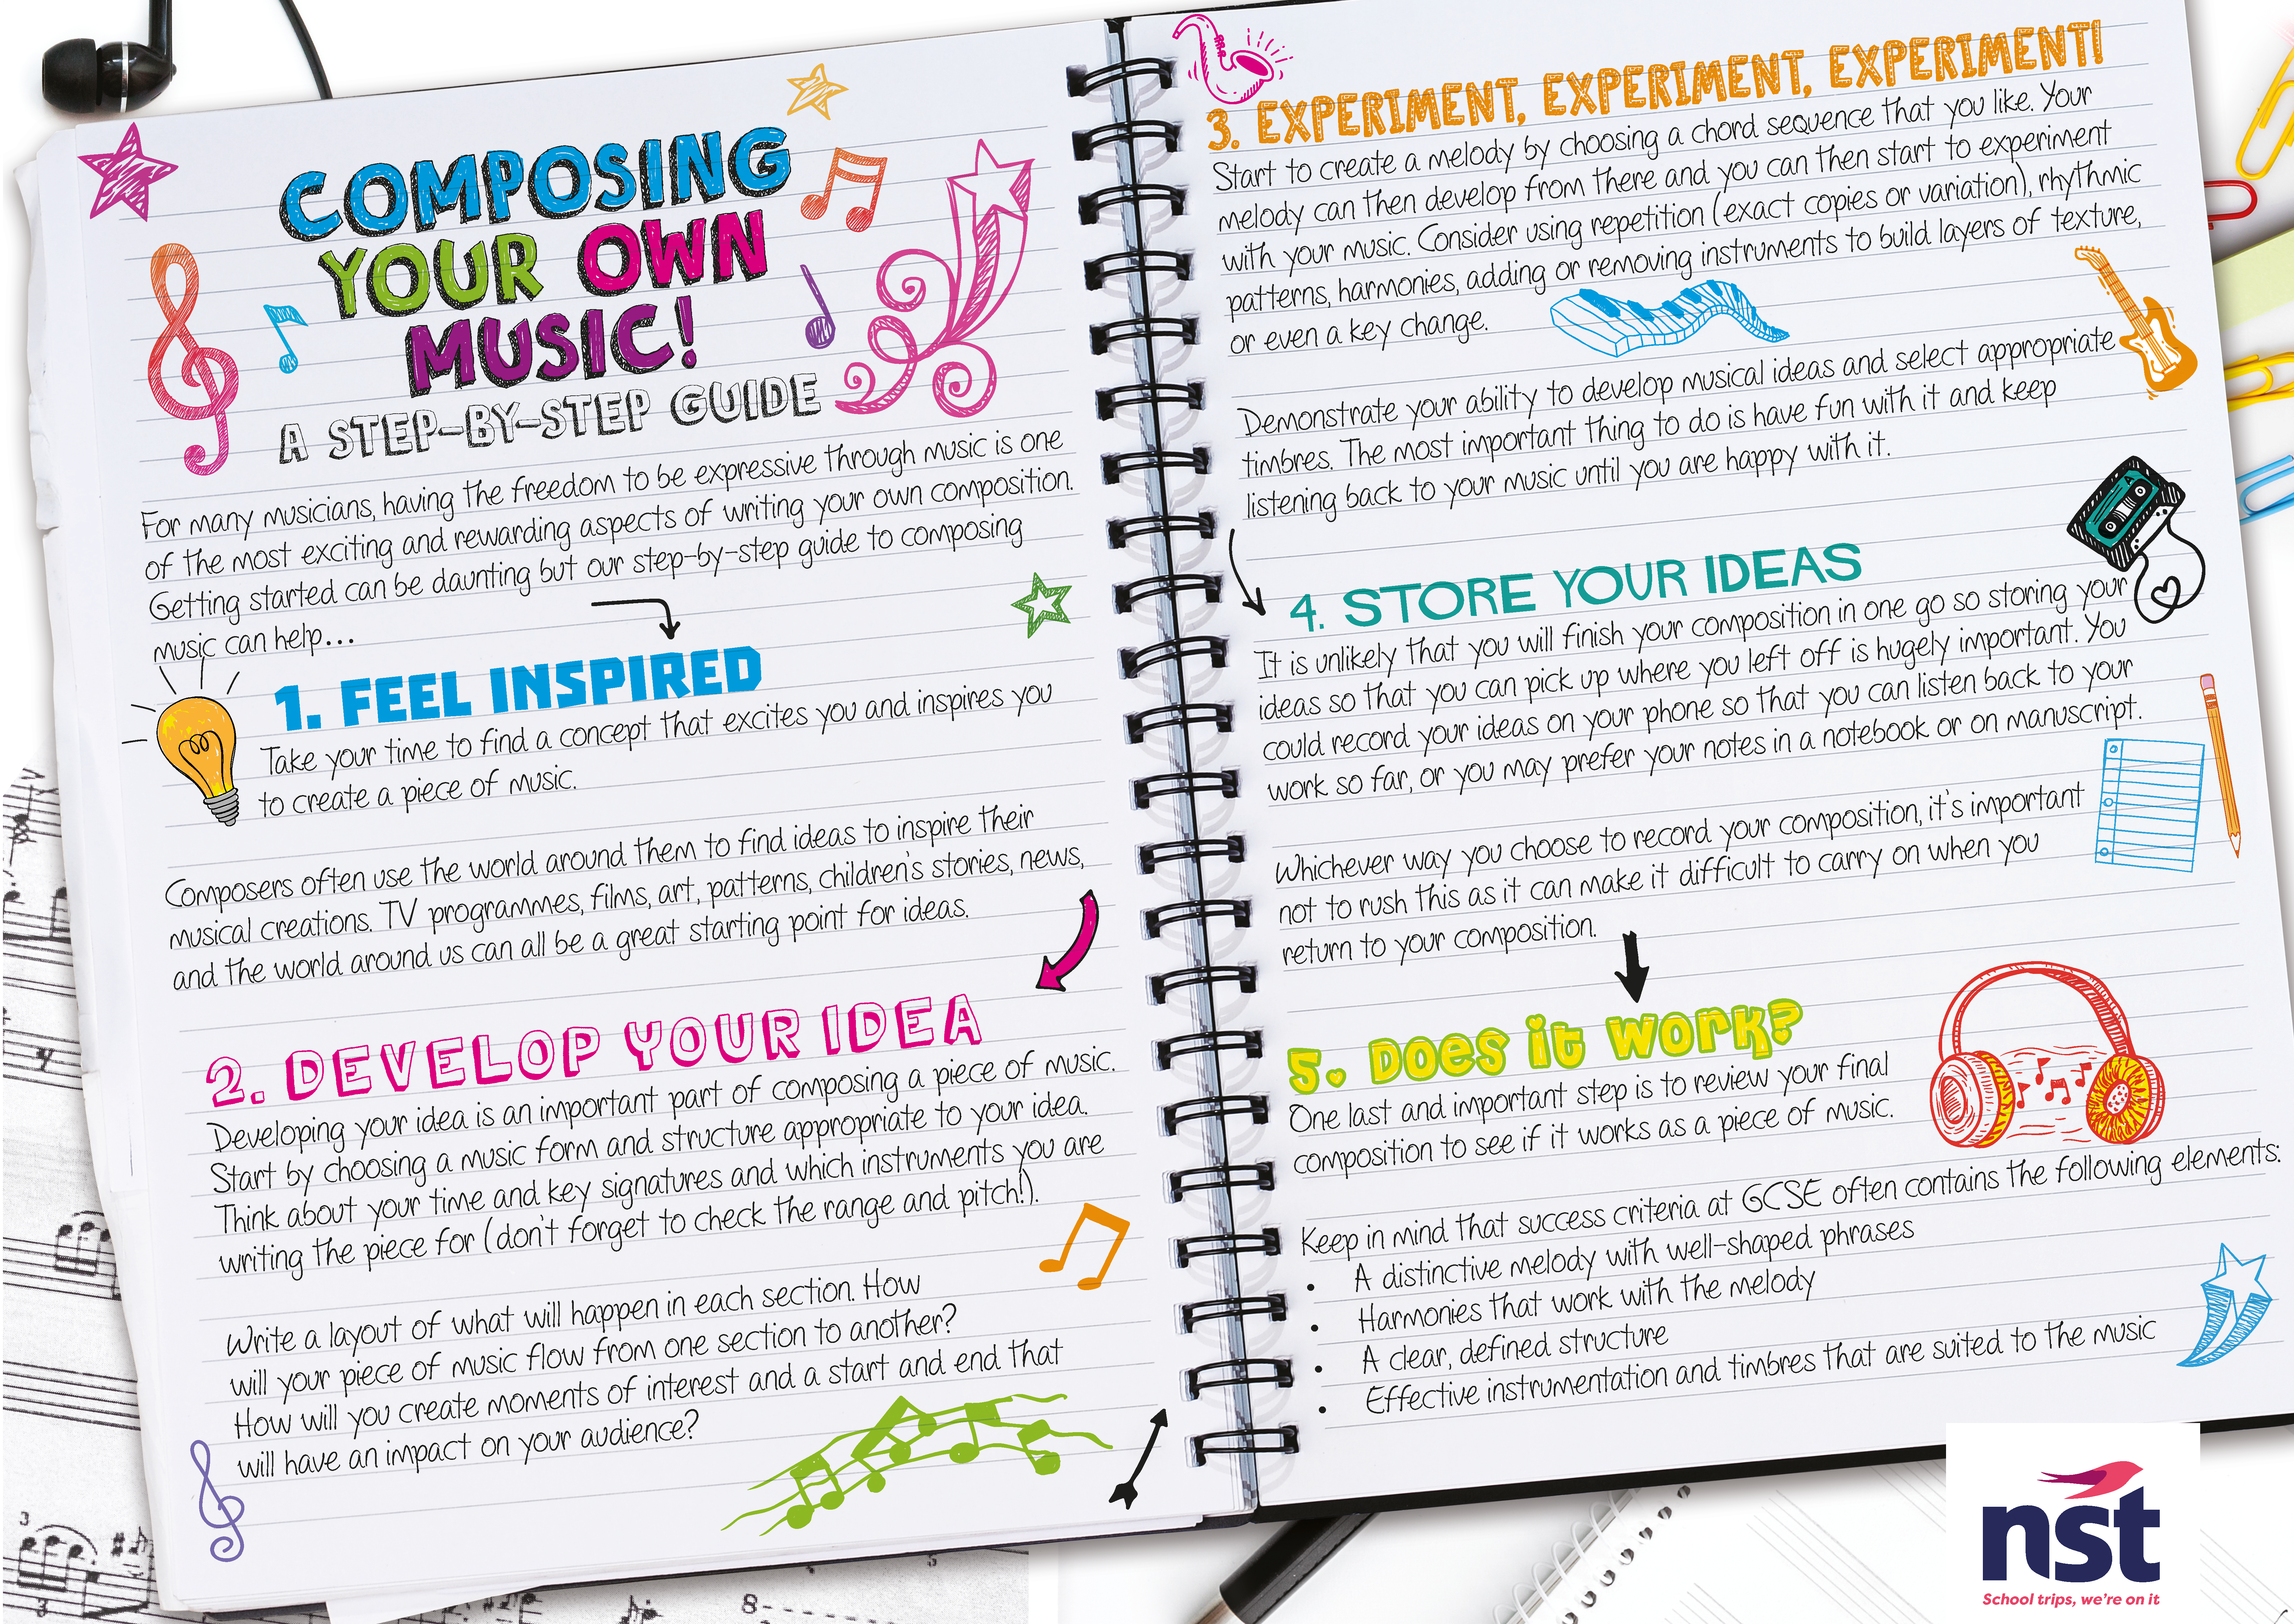 COMPOSING
YOUR OWN
MUSIC!
A STEP-BY-STEP GUIDE
For many musicians, having the freedom to be expressive through music is one
of the most exciting and rewarding aspects of writing your own composition.
Getting started can be daunting but our step-by-step guide to composing
music can help...
1. FEEL INSPIRED
Take your time to find a concept that excites you and inspires you
to create a piece of music.
Composers often use the world around them to find ideas to inspire their
musical creations. TV programmes, films, art, patterns, children's stories, news,
and the world around us can all be a great starting point for ideas.
2. DEVELOP YOUR IDEA
Developing your idea is an important part of composing a piece of music.
Start by choosing a music form and structure appropriate to your idea.
Think about your time and key signatures and which instruments you are
writing the piece for (don't forget to check the range and pitch!).
Write a layout of what will happen in each section. How
will your piece of music flow from one section to another?
How will you create moments of interest and a start and end that
will have an impact on your audience?
3. EXPERIMENT, EXPERIMENT, EXPERIMENT!
Start to create a melody by choosing a chord sequence that you like. Your
melody can then develop from there and you can then start to experiment
with your music. Consider using repetition (exact copies or variation), rhythmic
patterns, harmonies, adding or removing instruments to build layers of texture,
or even a key change.
Demonstrate your ability to develop musical ideas and select appropriate
timbres. The most important thing to do is have fun with it and keep
listening back to your music until you are happy with it.
4. STORE YOUR IDEAS
It is unlikely that you will finish your composition in one go so storing your
ideas so that you can pick up where you left off is hugely important. You
could record your ideas on your phone so that you can listen back to your
work so far, or you may prefer your notes in a notebook or on manuscript.
Whichever way you choose to record your composition, it's important
not to rush this as it can make it difficult to carry on when you
return to your composition.
5. Does it work?
One last and important step is to review your final
composition to see if it works as a piece of music.
Keep in mind that success criteria at GCSE often contains the following elements:
• A distinctive melody with well-shaped phrases
• Harmonies that work with the melody
• A clear, defined structure
• Effective instrumentation and timbres that are suited to the music
nst
School trips, we're on it